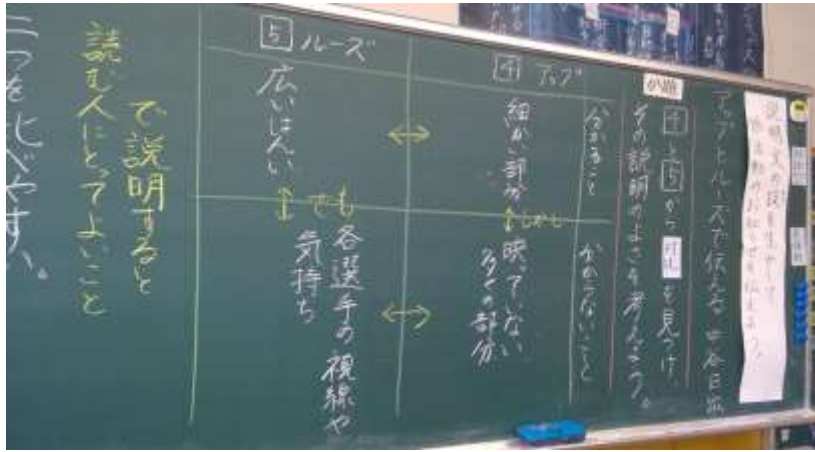 説明文の技を生かして
アップとルーズで伝える 中谷日出
め題
4と5から対比を見つけ、
その説明のよさを考えよう。
分かること
分からないこと
4 アップ
細かい部分
↕しかし
映っていない
多くの部分
↔
↔
5 ルーズ
広いはんい
↕でも
各選手の視線や
気持ち
で説明すると
読む人にとってよいこと
二つを比べやすい。